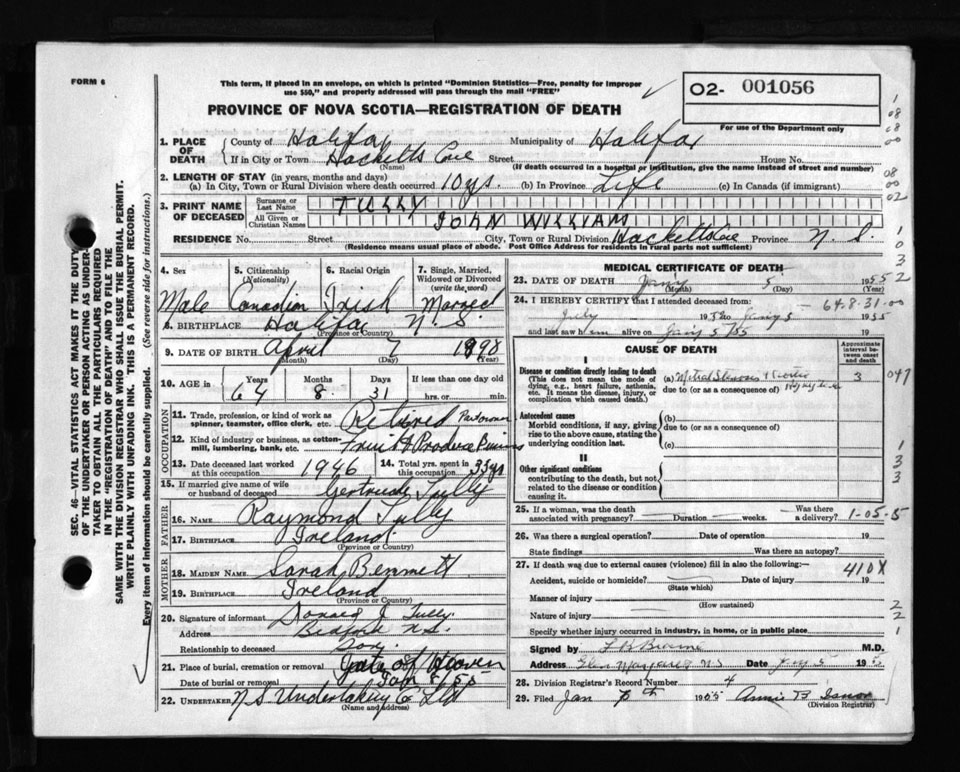 FORM 6
This form, if placed in an envelope, on which is printed "Dominion Statistics—Free, penalty for improper
use $50," and properly addressed will pass through the mail "FREE"
O2- 001056
PROVINCE OF NOVA SCOTIA—REGISTRATION OF DEATH
For use of the Department only
1. PLACE OF DEATH
County of Halifax Municipality of Halifax
If in City or Town Hacketts Cove Street House No.
(Name) (If death occurred in a hospital or institution, give the name instead of street and number)
2. LENGTH OF STAY (in years, months and days)
(a) In City, Town or Rural Division where death occurred 10 ys. (b) In Province Life (c) In Canada (if immigrant)
3. PRINT NAME OF DECEASED
Surname or Last Name TULLY
All Given or Christian Names JOHN WILLIAM
RESIDENCE No. Street City, Town or Rural Division Hacketts Cove Province N. S.
(Residence means usual place of abode. Post Office Address for Residents in rural parts not sufficient)
4. Sex Male
5. Citizenship (Nationality) Canadian
6. Racial Origin Irish
7. Single, Married, Widowed or Divorced (write the word) Married
8. BIRTHPLACE Halifax N. S.
(Province or Country)
9. DATE OF BIRTH April 7 1898
(Month) (Day) (Year)
10. AGE in Years Months Days If less than one day old
64 8 31 hrs. or min.
OCCUPATION
11. Trade, profession, or kind of work as spinner, teamster, office clerk, etc. Retired
12. Kind of industry or business, as cotton-mill, lumbering, bank, etc. Fruit & Produce Business
13. Date deceased last worked at this occupation 1946 14. Total yrs. spent in this occupation 33 ys
15. If married give name of wife or husband of deceased Gertrude Tully
FATHER
16. NAME Raymond Tully
17. BIRTHPLACE Ireland
(Province or Country)
MOTHER
18. MAIDEN NAME Sarah Bennett
19. BIRTHPLACE Ireland
(Province or Country)
20. Signature of informant Donald J Tully
Address Bedford N.S.
Relationship to deceased Son
21. Place of burial, cremation or removal Gate of Heaven
Date of burial or removal Jan 8/55
22. UNDERTAKER N S Undertaking Co Ltd
(Name and address)
MEDICAL CERTIFICATE OF DEATH
23. DATE OF DEATH Jan'y 5 1955
(Month) (Day)
24. I HEREBY CERTIFY that I attended deceased from: 64-8-31-00
July to Jan'y 5 1955
and last saw him alive on Jan'y 5 19
CAUSE OF DEATH
Approximate interval between onset and death
I
Disease or condition directly leading to death
(This does not mean the mode of dying, e.g., heart failure, asthenia, etc. It means the disease, injury, or complication which caused death.)
(a) Mitral Stenosis 3
due to (or as a consequence of)
Antecedent causes
Morbid conditions, if any, giving rise to the above cause, stating the underlying condition last.
(b)
due to (or as a consequence of)
(c)
II
Other significant conditions
contributing to the death, but not related to the disease or condition causing it.
25. If a woman, was the death associated with pregnancy? Duration weeks. Was there a delivery? 1-05-5
26. Was there a surgical operation? Date of operation 19
State findings Was there an autopsy?
27. If death was due to external causes (violence) fill in also the following:— 410X
Accident, suicide or homicide? Date of injury 19
(State which)
Manner of injury
(How sustained)
Nature of injury
Specify whether injury occurred in industry, in home, or in public place
Signed by M.D.
Address Glen Margaret N S Date Jany 5 195
28. Division Registrar's Record Number 4
29. Filed Jan 1955 Annie B
(Division Registrar)
SEC. 46—VITAL STATISTICS ACT MAKES IT THE DUTY
OF THE UNDERTAKER OR PERSON ACTING AS UNDERTAKER
TO OBTAIN ALL THE PARTICULARS REQUIRED
IN THE "REGISTRATION OF DEATH" AND TO FILE THE
SAME WITH THE DIVISION REGISTRAR WHO SHALL ISSUE THE BURIAL PERMIT.
WRITE PLAINLY WITH UNFADING INK. THIS IS A PERMANENT RECORD.
Every item of information should be carefully supplied. (See reverse side for instructions.)